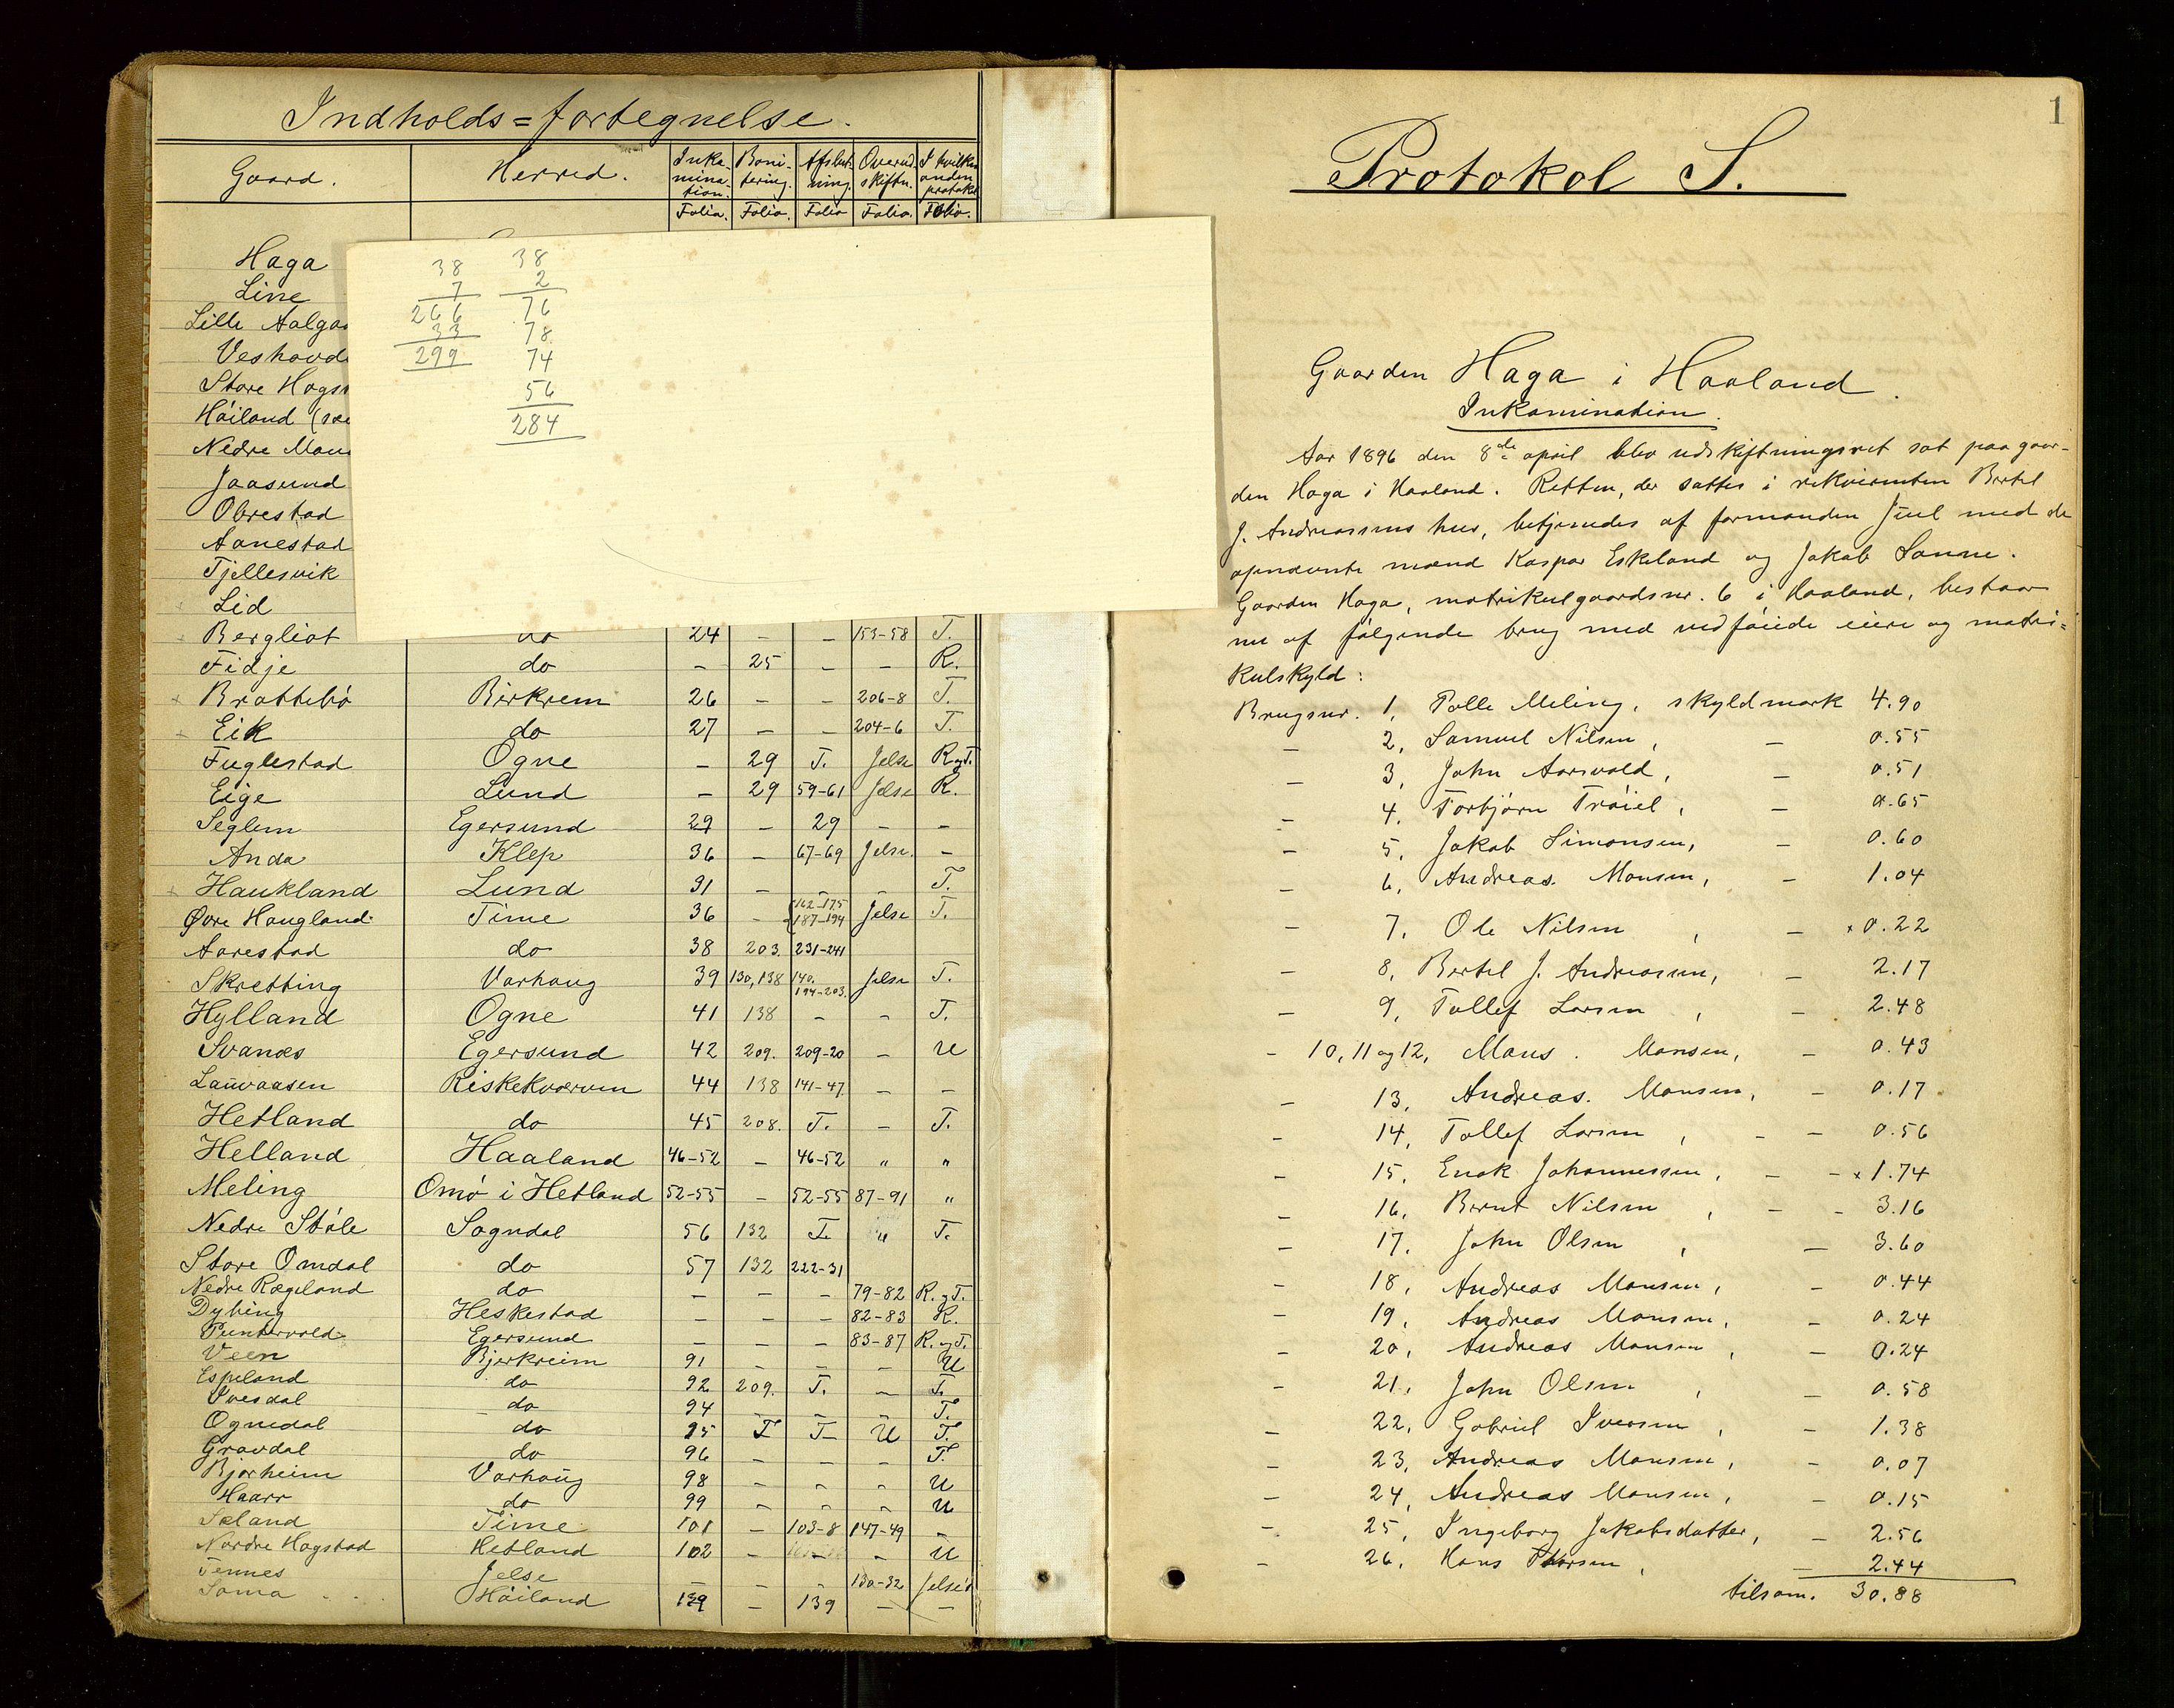 Indholds=fortegnelse.
Gaard. Herred. Inka-mina-tion. Boni-tering. Afslut-ning. Overud-skiftn. I hvilken anden protokol
Folio. Folio. Folio Folio. Folio.
Haga
Line
Lille Aalgaa
Veshovd
Store Hogs
Höiland
Nedre Mau
Jaasund
Obrestad
Aanestad
Tjellesvik
Lid
38 38
7 2
266 76
33 78
299 74
56
284
Bergliot do 24 - - 153-58 T.
Fidje do - 25 - - R.
Brattebö Birkrem 26 - - 206-8 T.
Eik do 27 - - 204-6 T.
Fuglestad Ogne - 29 T. Jelse R.ogT.
Eige Lund - 29 59-61 Jelse R.
Seglem Egersund 29 - 29 - -
Anda Klep 36 - 67-69 Jelse. -
Haukland Lund 31 - - - T.
Øvre Haugland Time 36 - 162-175 187-194 Jelse T.
Aarestad do 38 203. 231-241
Skretting Varhaug 39 130,138 140. 194-203. Jelse T.
Hylland Ogne 41 138 - - T.
Svanæs Egersund 42 209. 209-20 - U
Lauvaasen Riskekværven 44 138 141-47. - -
Hetland do 45 208. T. - T.
Helland Haaland 46-52 - 46-52 " "
Meling Omö i Hetland 52-55 - 52-55 87-91 "
Nedre Stöle Sogndal 56 132 T. " T.
Store Omdal do 57 132 222-31
Nedre Rægeland do - - - 79-82 R.ogT.
Dybing Heskestad - - - 82-83 R.
Puntervold Egersund - - - 83-87 R.ogT.
Veen Bjerkreim 91 - - - U
Espeland do 92 209. T. - T.
Ivesdal do 94 - - - T.
Ognedal do 95 T T U T.
Gravdal do 96 - - - T.
Bjorheim Varhaug 98 - - - U
Haarr do 99 - - - U
Sæland Time 101 - 103-8 147-49 -
Nordre Hogstad Hetland 102 - - - U
Tennes Jelse - - - 130-32 Jelse
Soma Höiland 139 - 139 - -
1
Protokol S.
Gaarden Haga i Haaland.
Inkamination.
Aar 1896 den 8de april blev udskiftningsret sat paa gaar-
den Haga i Haaland. Retten, der sattes i rekvirenten Bertel
J. Andreassens hus, betjenedes af formanden Juel med de
opnævnte mænd Kaspar Eskeland og Jakob Sømme.
Gaarden Haga, matrikulgaardsnr. 6 i Haaland, bestaar
nu af følgende brug med vedföiede eiere og matri=
kulskyld:
Brugsnr. 1, Tolle Meling, skyldmark 4.90
- 2, Samuel Nilsen, - 0.55
- 3, John Aarsvold, - 0.51
- 4, Torbjörn Tröiel, - 0.65
- 5, Jakob Simonsen, - 0.60
- 6, Andreas Monsen, - 1.04
- 7. Ole Nilsen, - x0.22
- 8, Bertel J. Andreassen, - 2.17
- 9, Tollef Larsen, - 2.48
- 10, 11 og 12, Mons Monsen, - 0.43
- 13, Andreas Monsen, - 0.17
- 14, Tollef Larsen, - - 0.56
- 15, Enok Johannessen, - - x1.74
- 16, Bernt Nilsen, - - 3.16
- 17. John Olsen, - 3.60
- 18, Andreas Monsen, - 0.44
- 19, Andreas Monsen, - 0.24
- 20, Andreas Monsen, - 0.24
- 21, John Olsen, - 0.58
- 22, Gabriel Iversen, - 1.38
- 23, Andreas Monsen, - 0.07
- 24, Andreas Monsen, - 0.15
- 25, Ingeborg Jakobsdatter, - 2.56
- 26, Hans Thorsen, - 2.44
tilsam. 30.88